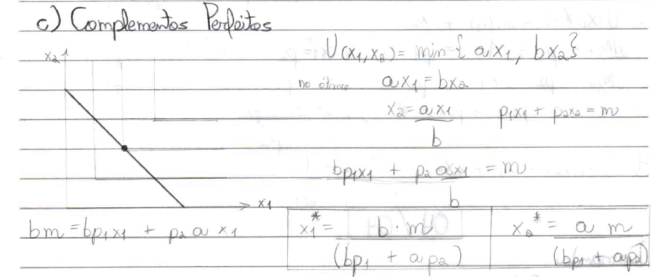 c) Complementos Perfeitos
x2 U(x1,x2) = min { ax1 , bx2 }
no ótimo ax1 = bx2
x2 = ax1 / b p1x1 + p2x2 = m
bp1x1 + p2 ax1 / b = m
x1
bm = bp1x1 + p2 a x1 x1* = b · m / (bp1 + ap2) x2* = a m / (bp1 + ap2)